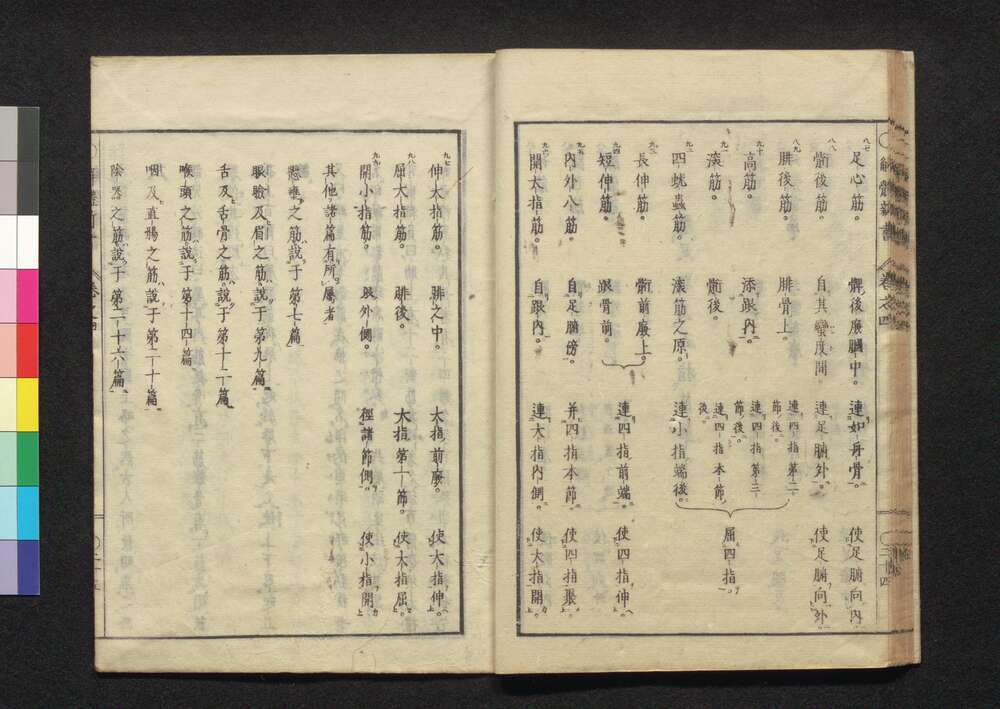 解體新書 卷之四
八七 足心筋。 髀後廉膕中。 連如舟骨。 使足腑向內。
八八 䯒後筋。 自其蠻度間 連足腑外。 使足腑向外。
八九 腓後筋。 腓骨上。 連四指第二節後。
九十 高筋。 添跟內。 連四指第三節後。
九一 滾筋。 䯒後。 連四指本節後。
屈四指。
九二 四蚘蟲筋。 滾筋之原。 連小指端後。
九三 長伸筋。 䯒前廉上。
九四 短伸筋。 跟骨前。 連四指前端。 使四指伸。
九五 內外八筋。 自足腑傍。 并四指本節。 使四指張。
九六 開大指筋。 自跟內。 連大指內側。 使大指開。
九七 伸大指筋。 腓之中。 大指前廉。 使大指伸。
九八 屈大指筋。 腓後。 大指第一節。 使大指屈。
九九 開小指筋。 跟外側。 徑諸節側。 使小指開。
其他諸篇有所屬者
懸壅之筋說于第七篇
眼瞼及眉之筋說于第九篇
舌及舌骨之筋說于第十二篇
喉頭之筋說于第十四篇
咽及直腸之筋說于第二十篇
陰器之筋說于第二十六篇